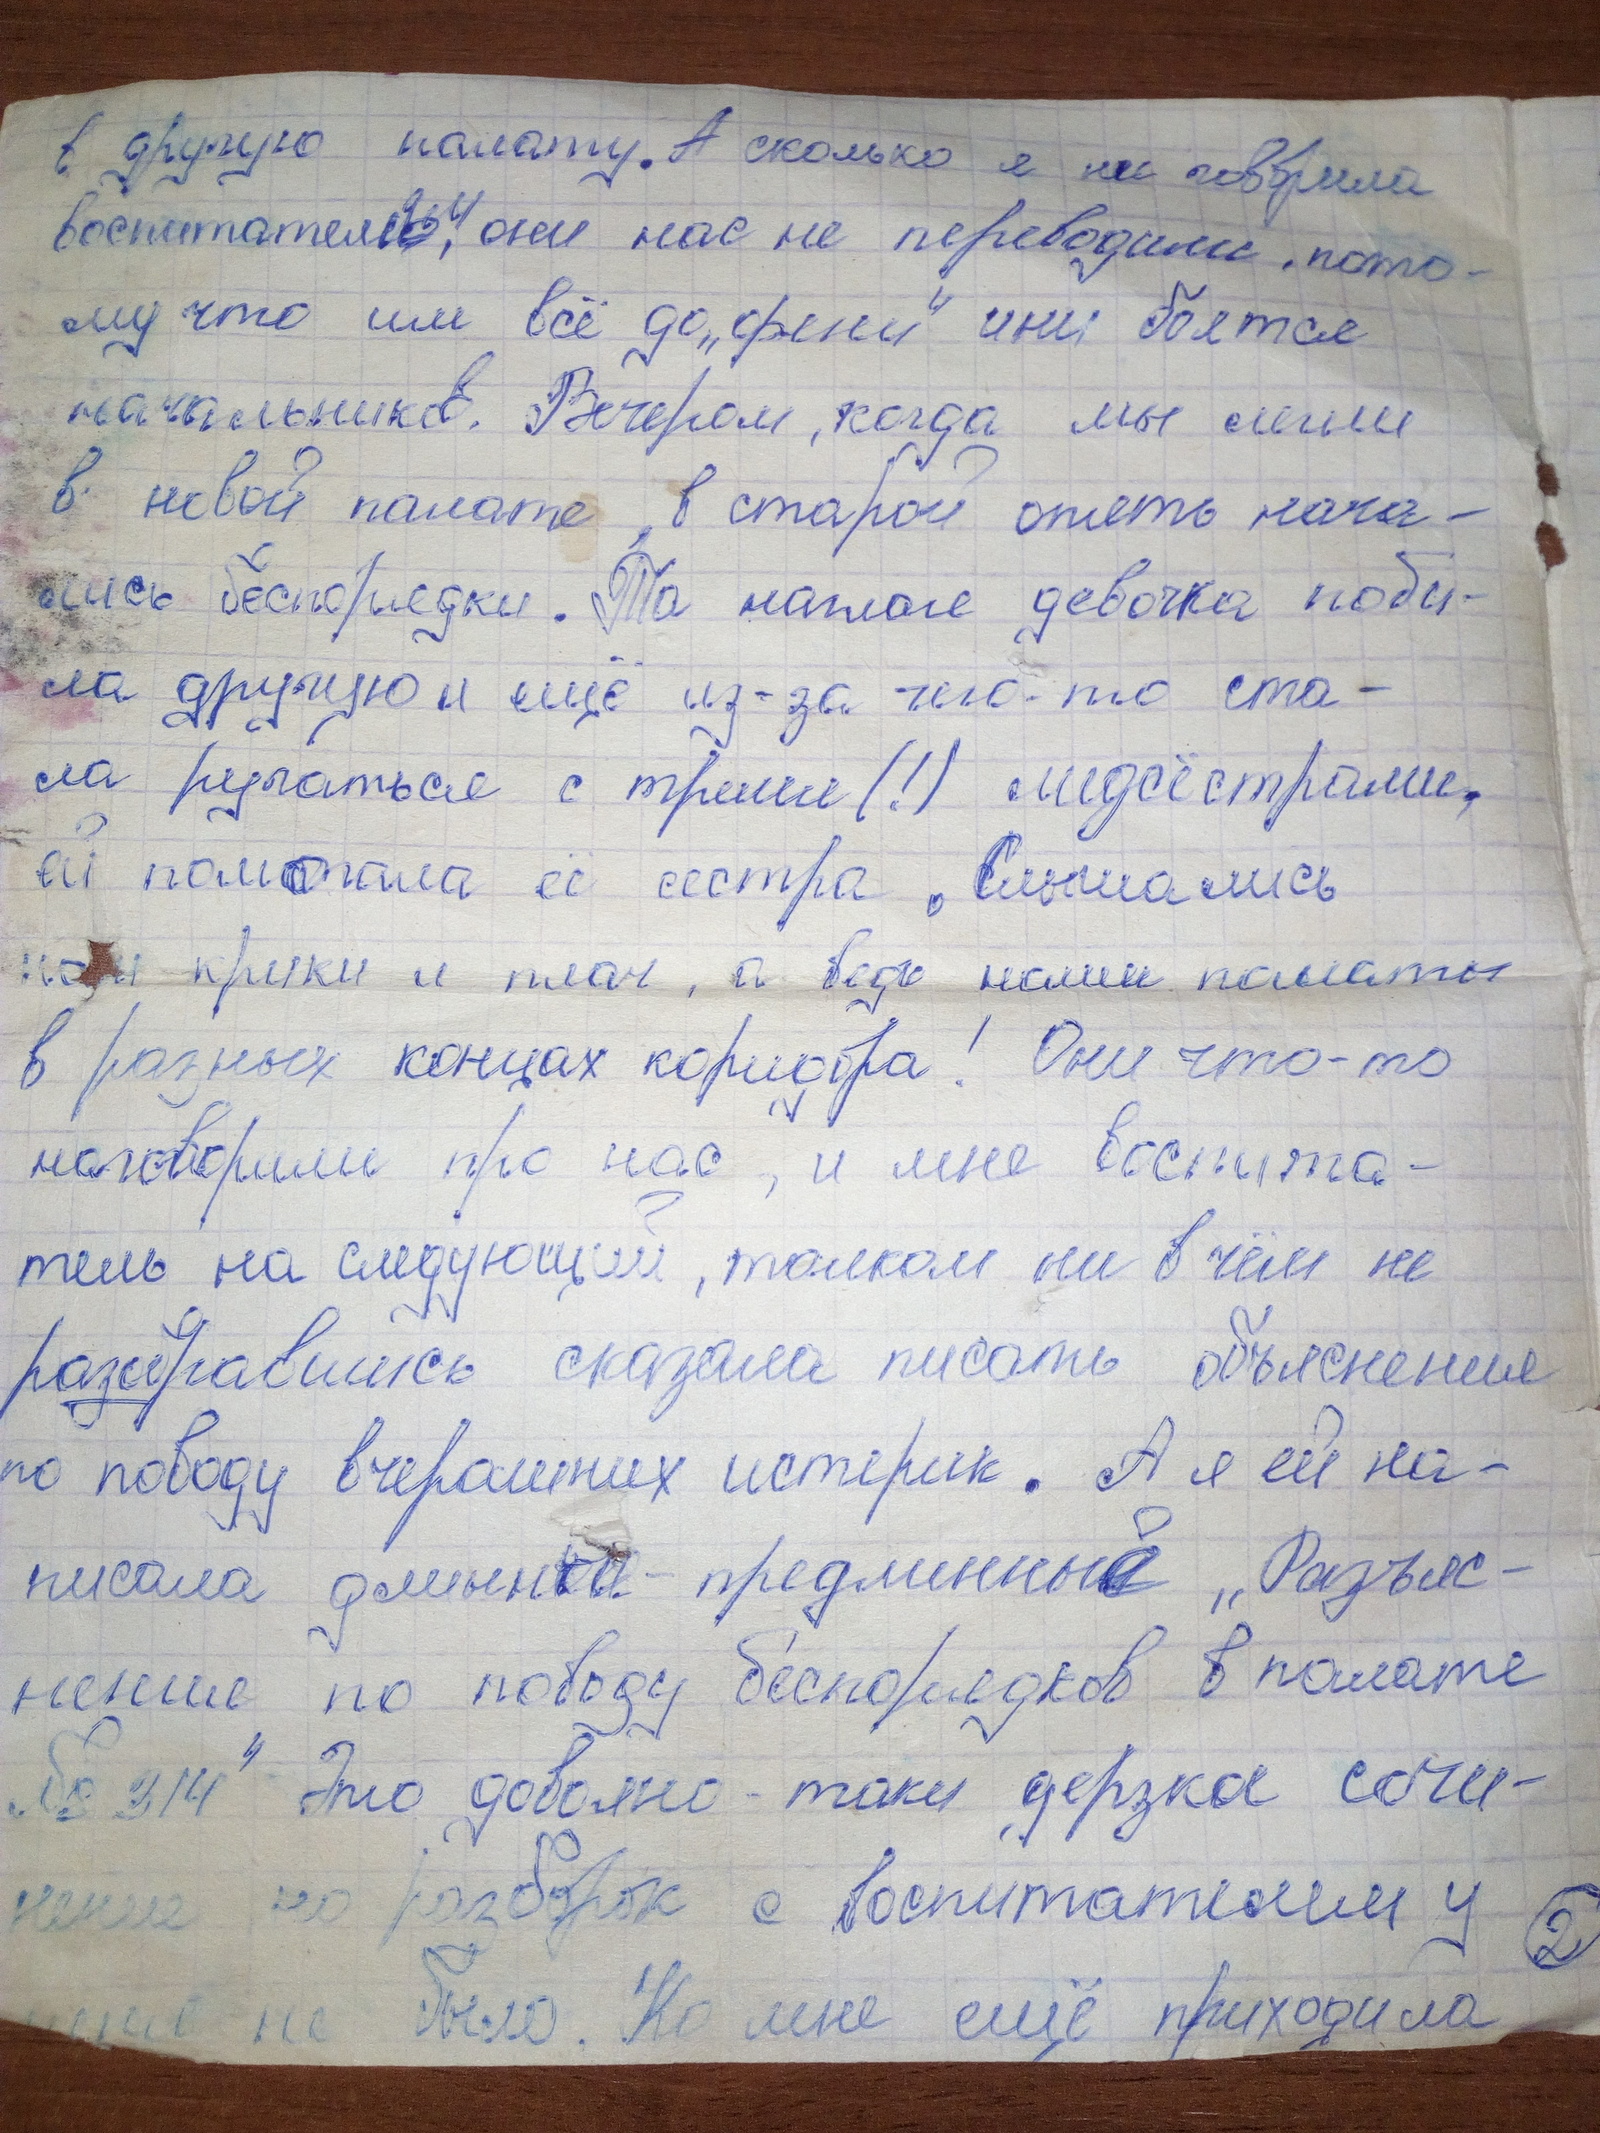 в другую палату. А сколько я ни говорила
воспитателю, они нас не переводили, пото-
му что им всё до „фени" и они боятся
начальников. Вечером, когда мы легли
в новой палате, в старой опять нача-
лись беспорядки. Та наглая девочка поби-
ла другую и ещё из-за чего-то ста-
ла ругаться с тремя (!) медсёстрами,
ей помогала её сестра. Слышались
крики и плач, а ведь наши палаты
в разных концах коридора! Они что-то
наговорили про нас, и мне воспита-
тель на следующий, толком ни в чём не
разобравшись сказала писать объяснение
по поводу вчерашних истерик. А я ей на-
писала длинный-предлинный „Разъяс-
нение по поводу беспорядков в палате
№ 314" Это довольно-таки дерзкое сочи-
нение но разборок с воспитателем у
меня не было. Ко мне ещё приходила
2